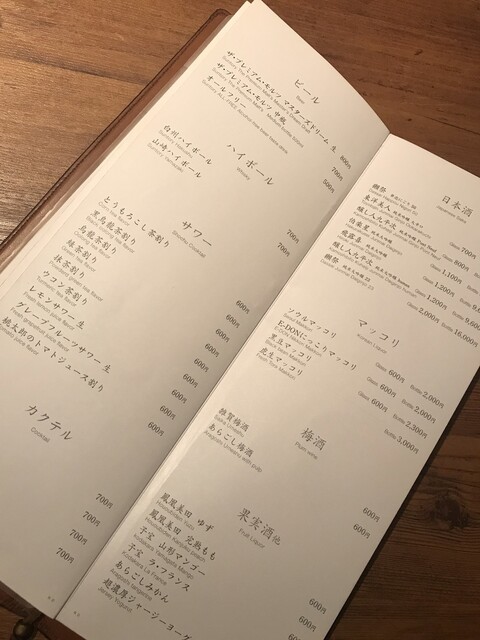 ビール
Beer
ザ・プレミアム・モルツ マスターズドリーム 生
800円
ザ・プレミアム・モルツ 中瓶
700円
オールフリー
500円
ハイボール
Whisky
白州ハイボール
Suntory Hakushu
700円
山崎ハイボール
Suntory Yamazaki
700円
サワー
Shochu Cocktail
とうもろこし茶割り
Corn tea flavor
600円
黒烏龍茶割り
600円
烏龍茶割り
Oolong tea flavor
600円
緑茶割り
Green tea flavor
600円
抹茶割り
600円
ウコン茶割り
Turmeric tea flavor
600円
レモンサワー 生
Fresh lemon juice flavor
600円
グレープフルーツサワー 生
Fresh grapefruit juice flavor
600円
桃太郎のトマトジュース割り
Tomato juice flavor
600円
カクテル
Cocktail
700円
700円
700円
日本酒
Japanese Sake
獺祭
Glass 700円
東洋美人
Glass 800円
醸し人九平次
1,100円
伯楽星
Glass 1,200円
飛露喜
Glass 1,200円
醸し人九平次
Bottle 9,600円
獺祭
Bottle 16,000円
マッコリ
Korean Liquor
ソウルマッコリ
Seoul Makkori
Glass 600円
Bottle 2,000円
E-DONにっこりマッコリ
Glass 600円
Bottle 2,000円
黒豆マッコリ
Black bean Makkori
Glass 600円
Bottle 2,300円
虎生マッコリ
Fresh Tora Makkori
Bottle 3,000円
梅酒
Plum wine
雑賀梅酒
Saika Umeshu
600円
あらごし梅酒
Aragoshi Umeshu with pulp
600円
果実酒他
Fruit Liquor
鳳凰美田 ゆず
Hououbiden Yuzu
600円
鳳凰美田 完熟もも
600円
子宝 山形マンゴー
Kodakara Yamagata Mango
子宝 ラ・フランス
Kodakara La France
あらごしみかん
Aragoshi tangerine
超濃厚ジャージーヨーグ
Jersey Yogurut